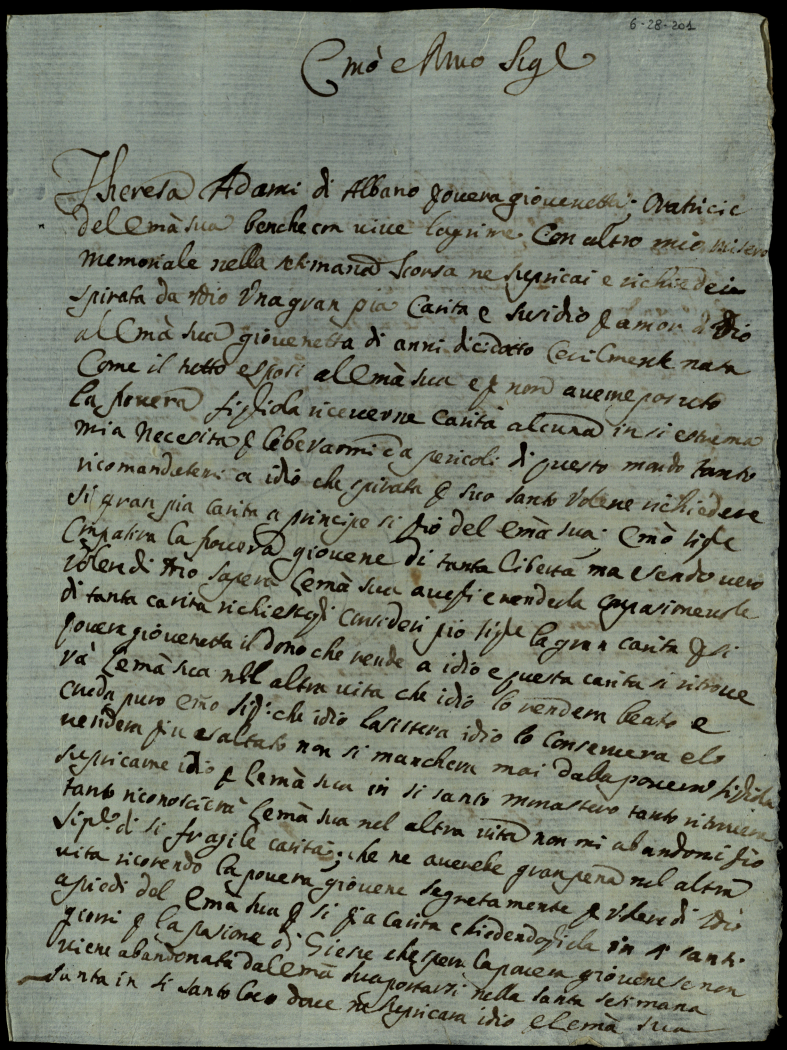 6-28-201
Emo e Rmo Sigre
Theresa Adami di Albano povera giovenetta Oratricie
del Emã sua benche con vive lagrime Con altro mio misero
memoriale nella setimana scorsa ne suplicai e richiedei
spirata da Idio Una gran pia Carita e Susidio p amor d Idio
al Emã sua giovenetta di anni diciotto Cevilmente nata
Come il tutto esposi al Emã sua e p non averne posuto
la povera figliola riceverne carità alcuna in si estrema
mia Necesita p leberarmi da pericoli di questo mondo tanto
ricomandatemi a idio che spirata p suo santo Volere richiedere
si gran pia carita a principe si pio del Emã sua; Emo sigre
Compatira la povera giovene di tanta libertà ma esendo vero
volere di Dio sapera lemã sua averli e renderla compasionevole
di tanta carita richiestagli Consideri pio sigre la gran carita p si
povera giovenetta il dono che rende a idio e questa carita si ritrove
rà lemã sua nel altra vita che idio lo rendera beato e
creda puro emo sigr: che idio lasistera idio lo Conservera elo
rendera piu esaltato non si manchera mai dalla povera figliola
suplicarne idio p lemã sua in si santo monastero tanto ritrovera
tanto riconoscierà lemã sua nel altra vita non mi abandoni pio
sigre di si fragile carita; che ne averebe gran pena nel altra
vita ricorendo la povera giovene segretamente p Volere di Idio
apiedi del Emã sua p si pia carita chiedendogliela in 4 santi
giorni p la pasione di Giesu che spera la povera giovene se non
viene abandonata dal Emã sua portarsi nella santa setimana
santa in si santo loco dove ne suplicara idio e lemã sua